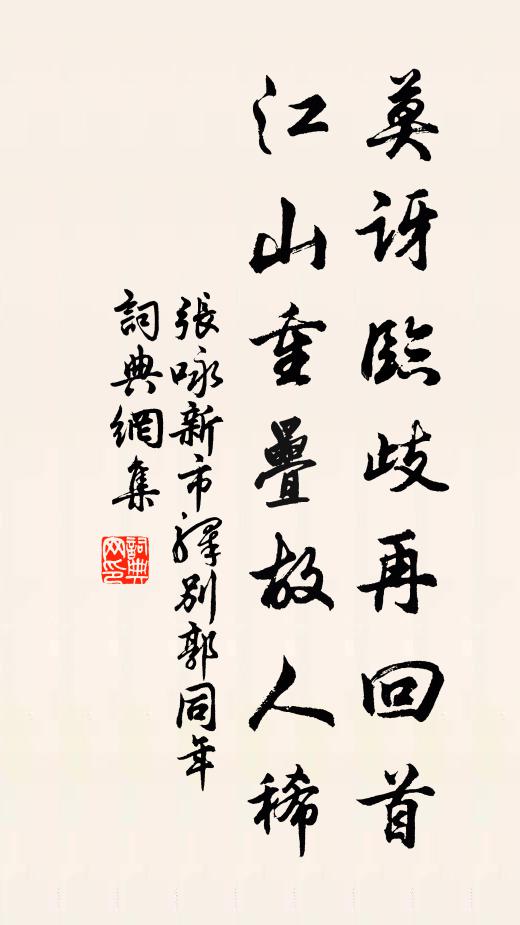 莫訝臨歧再回首
江山重疊故人稀
張咏新市驛別郭同年
詞典網集
詞典網印